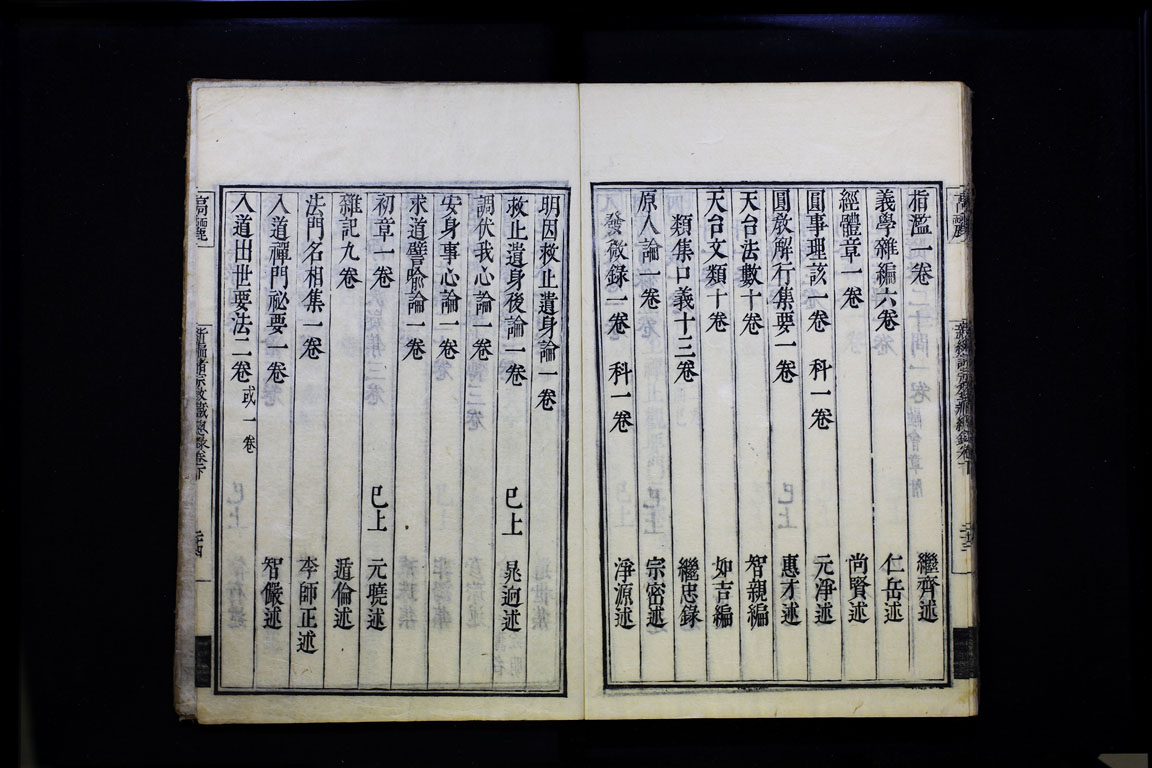 指濫一卷 繼齊述
義學雜編六卷 仁岳述
經體章一卷 尚賢述
圓事理該一卷 科一卷 元淨述
圓教解行集要一卷 惠才述
天台法數十卷 智親編
天台文類十卷 如吉編
類集口義十三卷 繼忠錄
原人論一卷 宗密述
發微錄一卷 科一卷 淨源述
明因救止遺身論一卷
救止遺身後論一卷 已上 晁迥述
調伏我心論一卷
安身事心論一卷
求道譬喻論一卷
初章一卷 已上 元曉述
雜記九卷 遁倫述
法門名相集一卷 李師正述
入道禪門祕要一卷 智儼述
入道出世要法二卷 或一卷
高麗
新編諸宗教藏總錄卷下